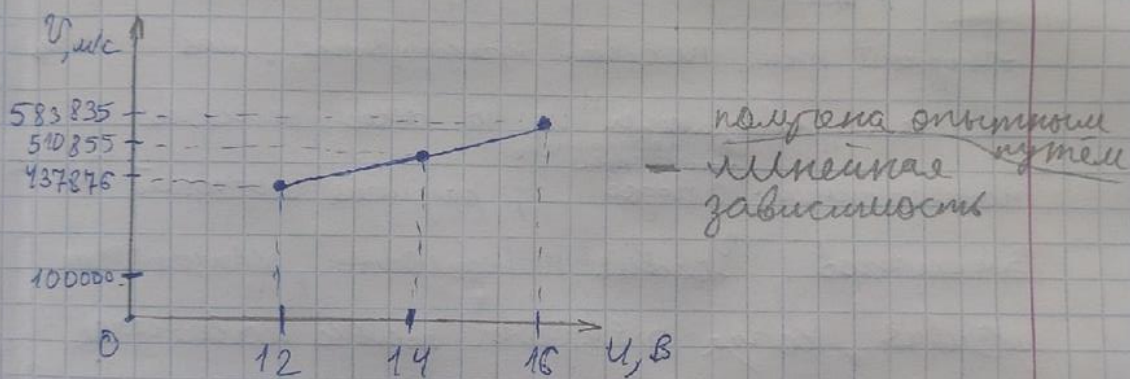 V, м/с
583835
510855
437876
100000
0
12
14
16
U, В
получена опытным
путем
- линейная
зависимость